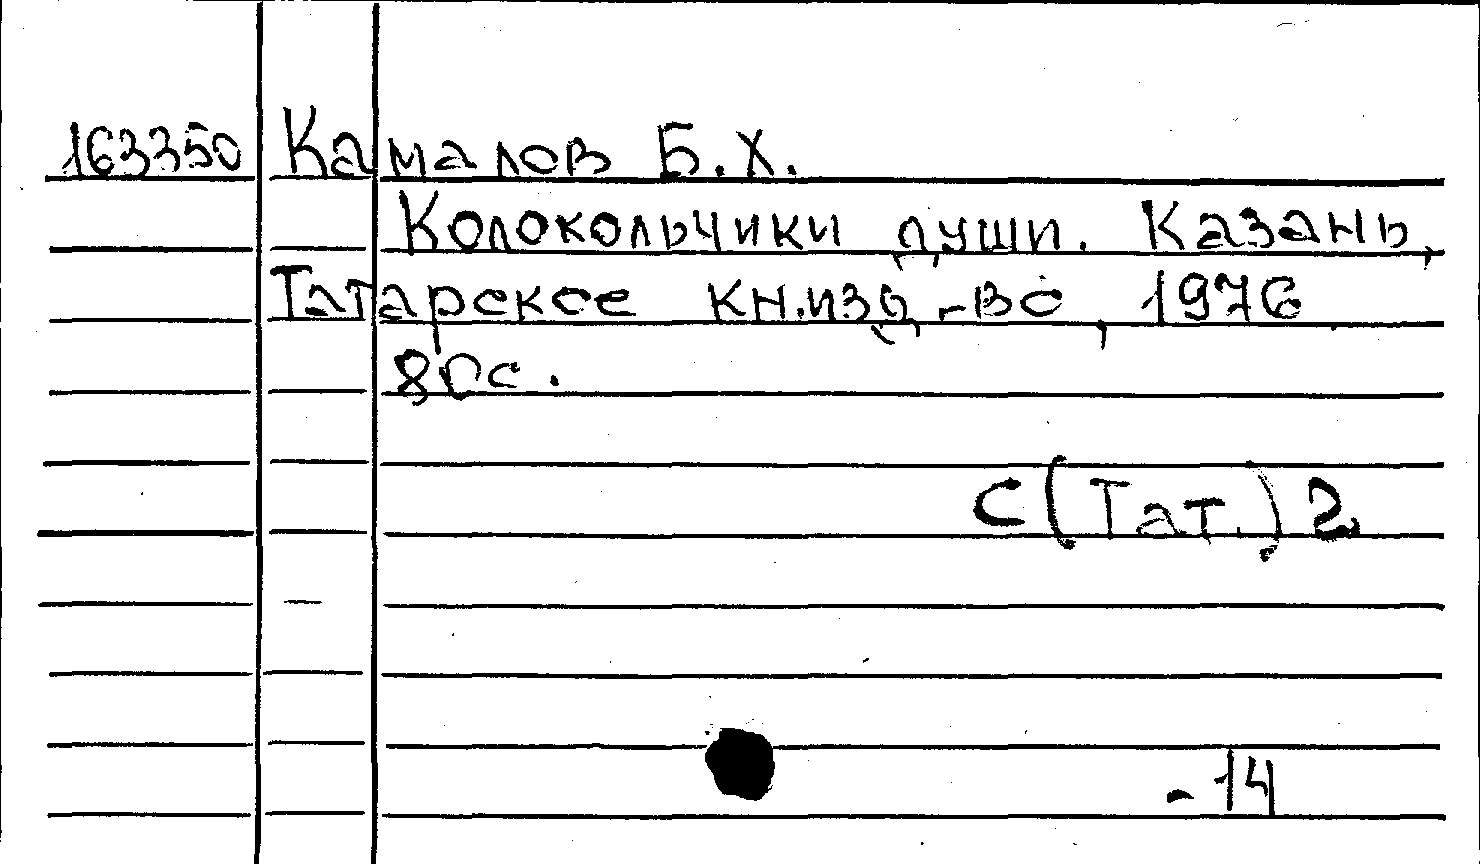 163350 Камалов Б.Х.
Колокольчики души. Казань,
Татарское кн.изд-во, 1976.
80с.
С(Тат.)2
-14